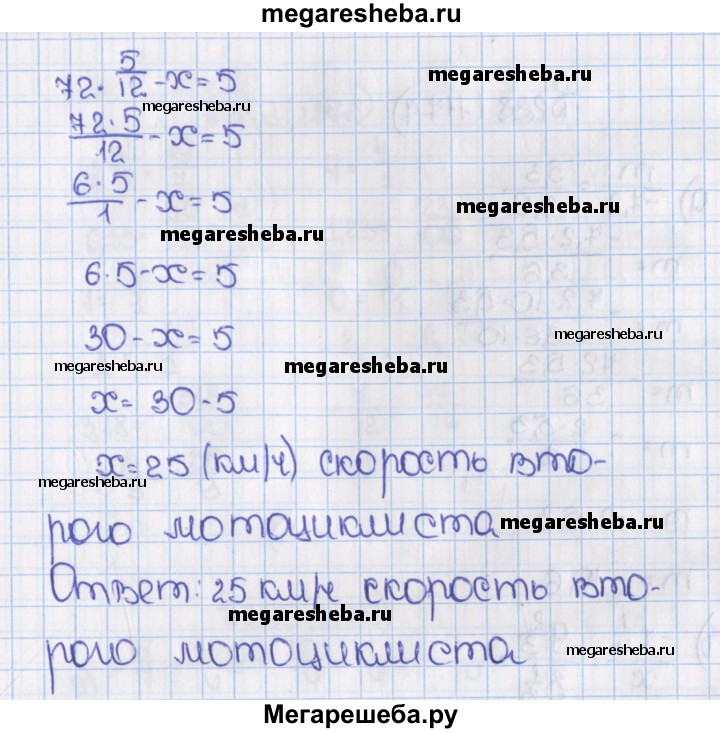 megaresheba.ru
72 · 5/12 - x = 5
megaresheba.ru
megaresheba.ru
72 · 5/12 - x = 5
6 · 5/1 - x = 5
megaresheba.ru
megaresheba.ru
6 · 5 - x = 5
30 - x = 5
megaresheba.ru
megaresheba.ru
megaresheba.ru
x = 30 - 5
x = 25 (км/ч) скорость вто-
megaresheba.ru
рого мотоциклиста
megaresheba.ru
Ответ: 25 км/ч скорость вто-
megaresheba.ru
рого мотоциклиста
megaresheba.ru
Мегарешеба.ру